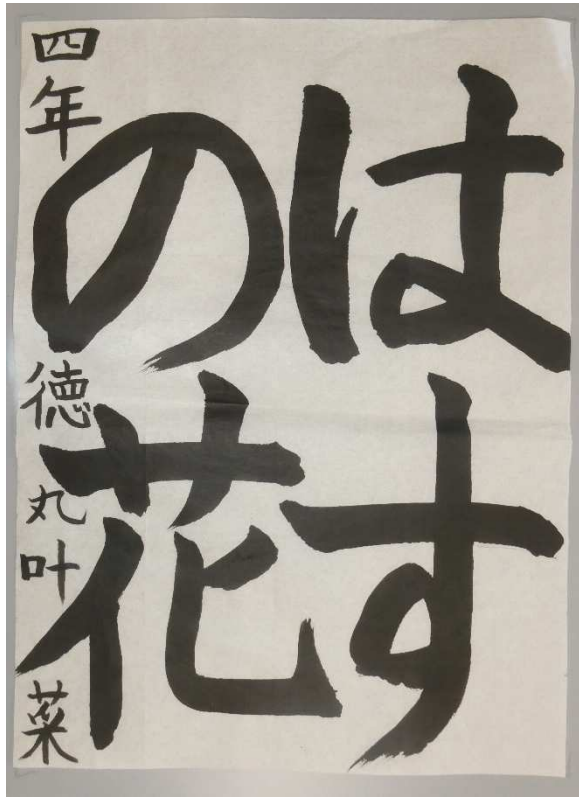 はす
の花
四年 徳丸叶菜